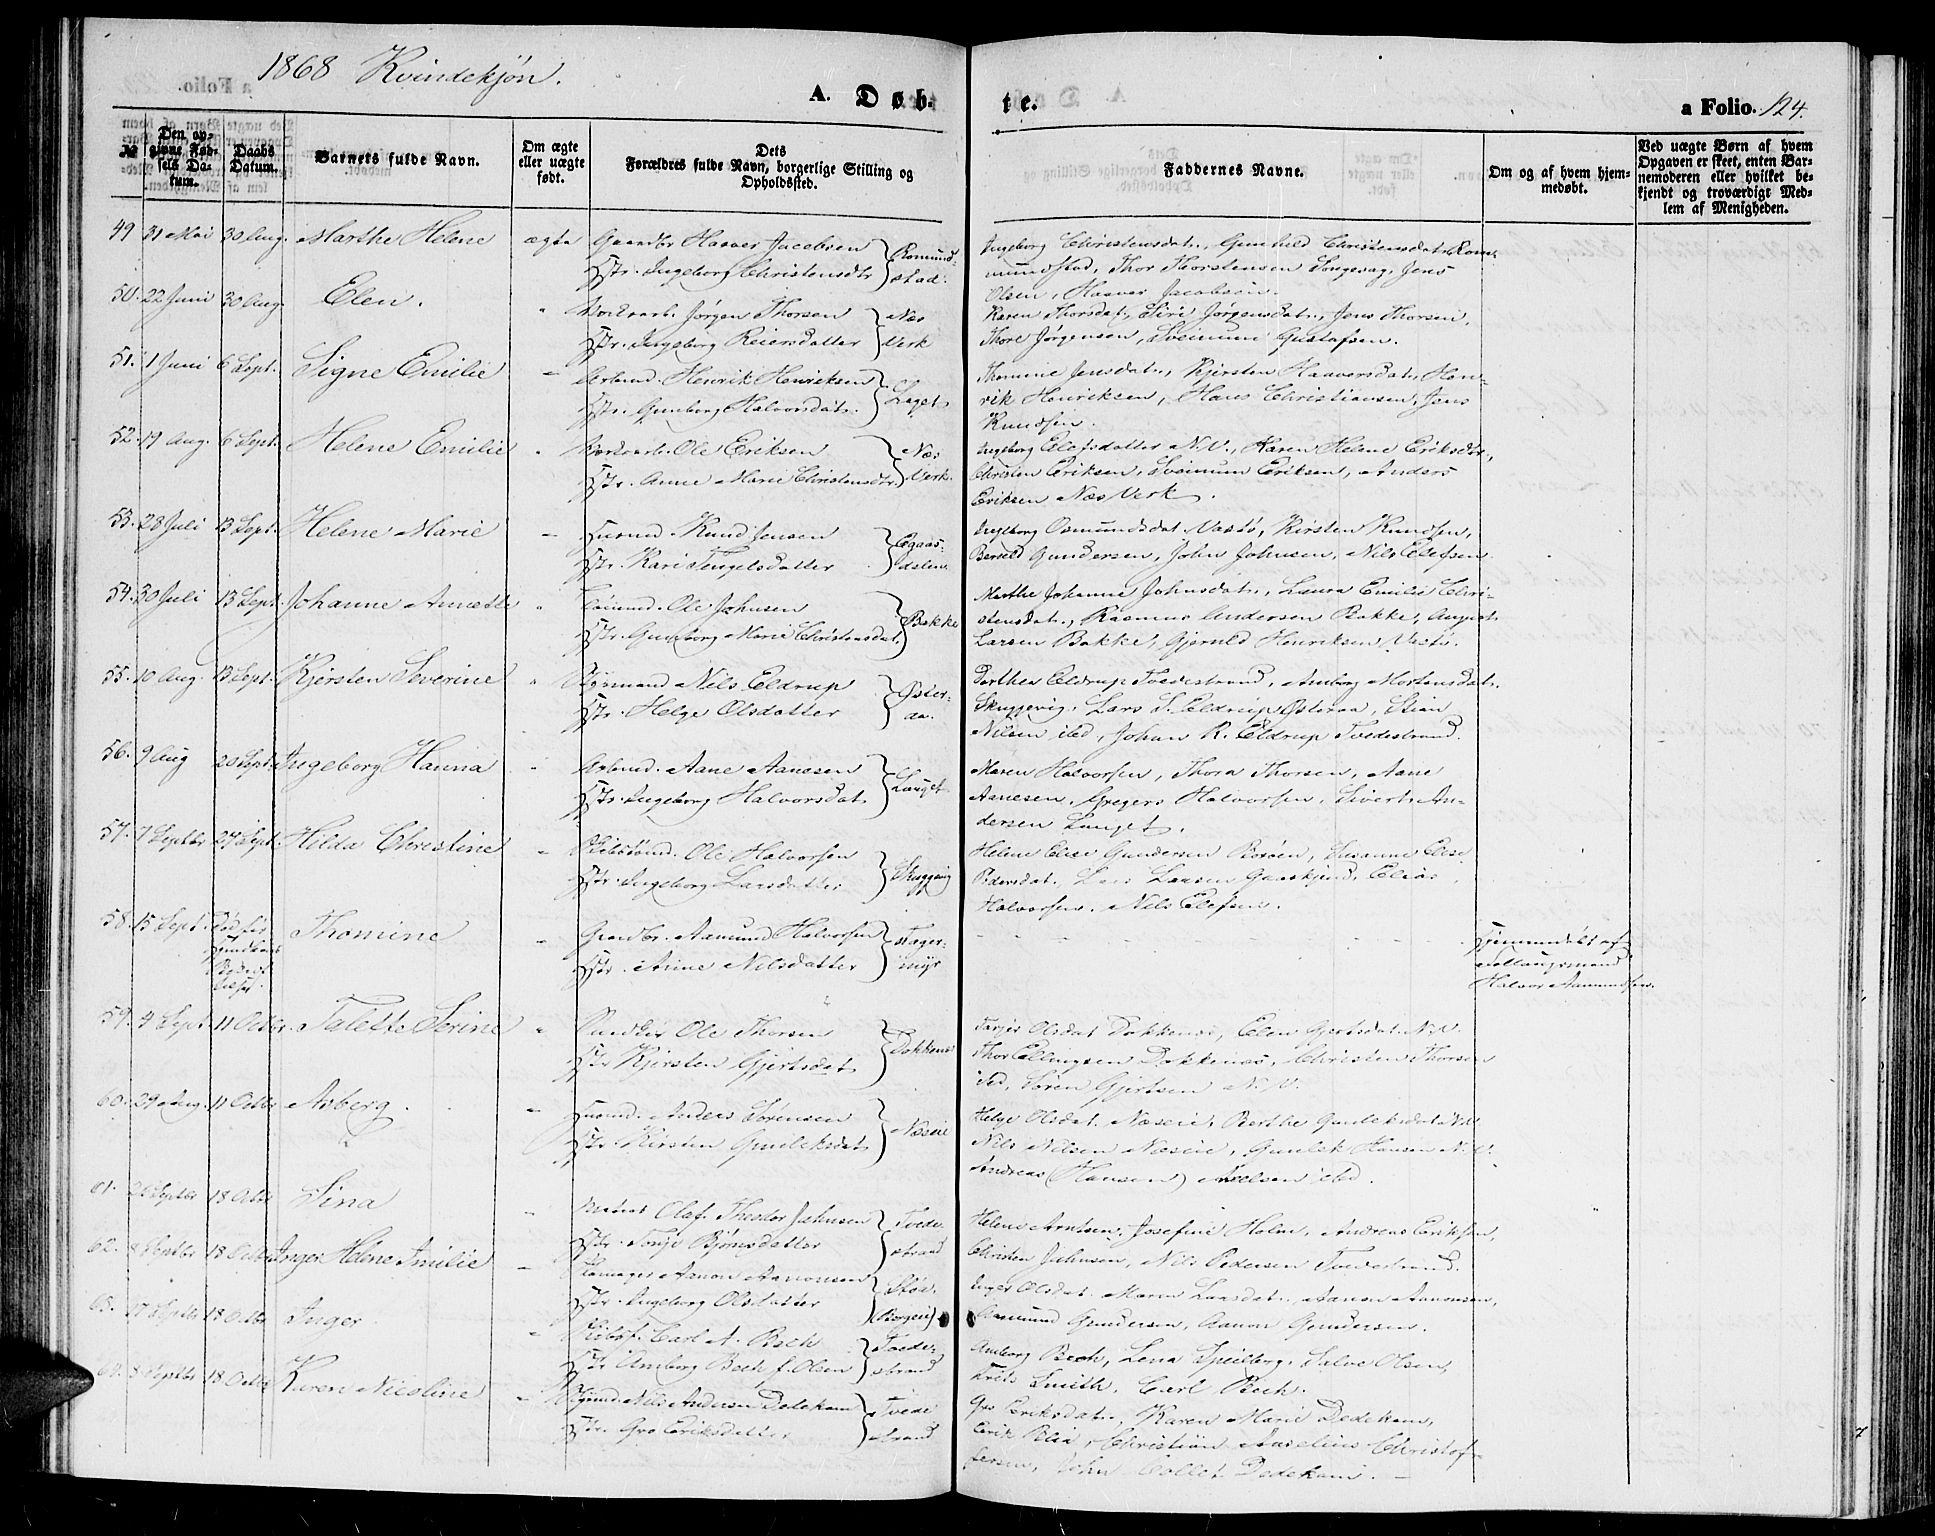 1868 Kvindekjøn.
A. Døb-
te.
a Folio. 124.
№
Den op-
givne Fød-
sels Da-
tum.
Daabs
Datum.
Barnets fulde Navn.
Om ægte
eller uægte
født.
Dets
Forældres fulde Navn, borgerlige Stilling og
Opholdssted.
Faddernes Navne.
Om og af hvem hjem-
medøbt.
Ved uægte Børn af hvem
Opgaven er skeet, enten Bar-
nemoderen eller hvilket be-
kjendt og troværdigt Med-
lem af Menigheden.
49 31 Mai 30 Aug. Marthe Helene ægte Gaardbr. Haaver Jacobsen Romund-
Hstr. Ingeborg Christensdtr stad.
Ingeborg Christensdat., Gunhild Christensdat. Rom-
mundstad, Thor Thorstensen Songevag, Jens
Olsen, Haaver Jacobsen.
50. 22 Juni 30 Aug. Elen. " Jørgen Thorsen Næs
Hstr. Ingeborg Reiersdatter Verk
Karen Thorsdat., Siri Jørgensdat., Jens Thorsen,
Thore Jørgensen, Sveinum Gustafsen.
51. 1 Juni 6 Sept. Signe Emilie " Arbmd. Henrik Henriksen Laget
Hstr. Gunborg Halvorsdat.
Thomine Jensdat., Kjersten Haaversdat., Hen-
rik Henriksen, Hans Christiansen, Jens
Knudsen.
52. 19 Aug. 6 Sept. Helene Emilie " Ole Eriksen Næs
Hstr. Anne Marie Christensdtr. Verk.
Ingeborg Elefsdatter N.V., Karen Helene Eriksdtr.,
Christen Eriksen, Sveinum Eriksen, Anders
Eriksen Næs Verk.
53. 28 Juli 13 Sept. Helene Marie " Husmd. Knud Jensen
Hstr. Kari Tengelsdatter
Ingeborg Osmundsdat. Vastø, Kirsten Knudsen,
Berteld Gundersen, John Johnsen, Nils Elefsen.
54. 30 Juli 13 Sept. Johanne Annette " Ole Johnsen Bakke
Hstr. Gunborg Marie Christensdat.
Marthe Johanne Johnsdat., Laura Emilie Chri-
stensdat., Rasmus Andersen Bakke, August
Larsen Bakke, Gjeruld Henriksen Vastø.
55. 10 Aug. 13 Sept. Kjersten Severine " Nils Eldrup Øster-
Hstr. Helge Olsdatter aa.
Dorthea Eldrup Tvedestrand, Amborg Mortensdat.
Skuggevig, Lars S. Eldrup Østeraa, Stian
Nilsen ibd, Johan R. Eldrup Tvedestrand.
56. 9 Aug 20 Sept. Ingeborg Hanna " Arbmd. Aane Aanesen Lauget
Hstr. Ingeborg Halvorsdat.
Maren Halvorsen, Thora Thorsen, Aane
Aanesen, Gregers Halvorsen, Sivert An-
dersen Lauget.
57. 7 Septbr 27 Sept. Hilda Christine " Ole Halvorsen Skuggevig
Hstr. Ingeborg Larsdatter
Helene Elise Gundersen Borøen, Susanne Else
Pedersdat., Lars Larsen Gaaskjend, Elias
Halvorsen, Nils Elefsen.
58. 15 Sept. Død før Thomine " Gaardbr. Aamund Halvorsen Fager-
Hstr. Anne Nilsdatter myr
Hjemmedøbt af
Halvor Aamundsen.
59. 4 Sept. 11 Octbr. Talette Serine " Ole Thorsen Dokkenæs
Hstr Kjersten Gjertsdat.
Tarjer Olsdat Dokkenæs, Elen Gjertsdat. N.V.
Thor Ellingsen Dokkenæs, Christen Thorsen
ibd, Søren Gjertsen N.V.
60. 29 Aug. 11 Octbr Asberg. " Husmd. Anders Sørensen Næseie
Hstr. Kirsten Gunleksdat.
Helge Olsdat. Næseie, Berthe Gunleksdat. N.V.
Nils Nilsen Næseie, Gunlek Hansen N.V.
Andreas (Hansen) Axelsen ibd.
61. 26 Septbr 18 Octbr Sina " Matros Olaf Theodor Johnsen Tvede-
Hstr. Tonje Bjørnsdatter strand
Helene Arntsen, Josefine Holm, Andreas Eriksen,
Christen Johnsen, Nils Pedersen Tvedestrand.
62. 8 Septbr 18 Octbr Inger Helene Amilie " Aanon Aanonsen Støl.
Hstr. Ingeborg Olsdatter (Borgen)
Inger Olsdat. Maren Larsdat., Aanon Aanonsen,
Aamund Gundersen, Aanon Gundersen.
63. 17 Septbr 18 Octbr Inger " Skibsf. Carl A. Bech Tvede-
Hstr Amborg Bech f. Olsen strand
Amborg Bech, Lena Speilberg, Salve Olsen,
Frits Smith, Carl Bech.
64. 8 Septbr 18 Octbr Karen Nicoline " Nils Andersen Dedekam Tvede
Hstr. Gro Eriksdatter strand
Gro Eriksdat., Karen Marie Dedekam,
Erik Blia, Christian Anselius Christof-
fersen, John Collet Dedekam.